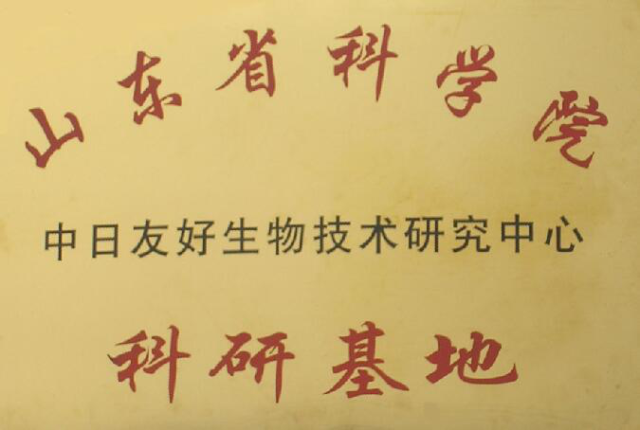 山东省科学院
中日友好生物技术研究中心
科研基地